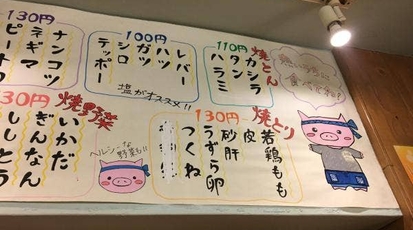 焼とん
110円
カシラ
タン
ハラミ
100円
レバー
ハツ
ガツ
シロ
テッポー
塩がオススメ!!
130円
ナンコツ
ネギマ
焼とり
130円
若鶏もも
皮
砂肝
うずら卵
つくね
ヘルシーな
野菜も!!
焼野菜
30円
いかだ
ぎんなん
ししとう